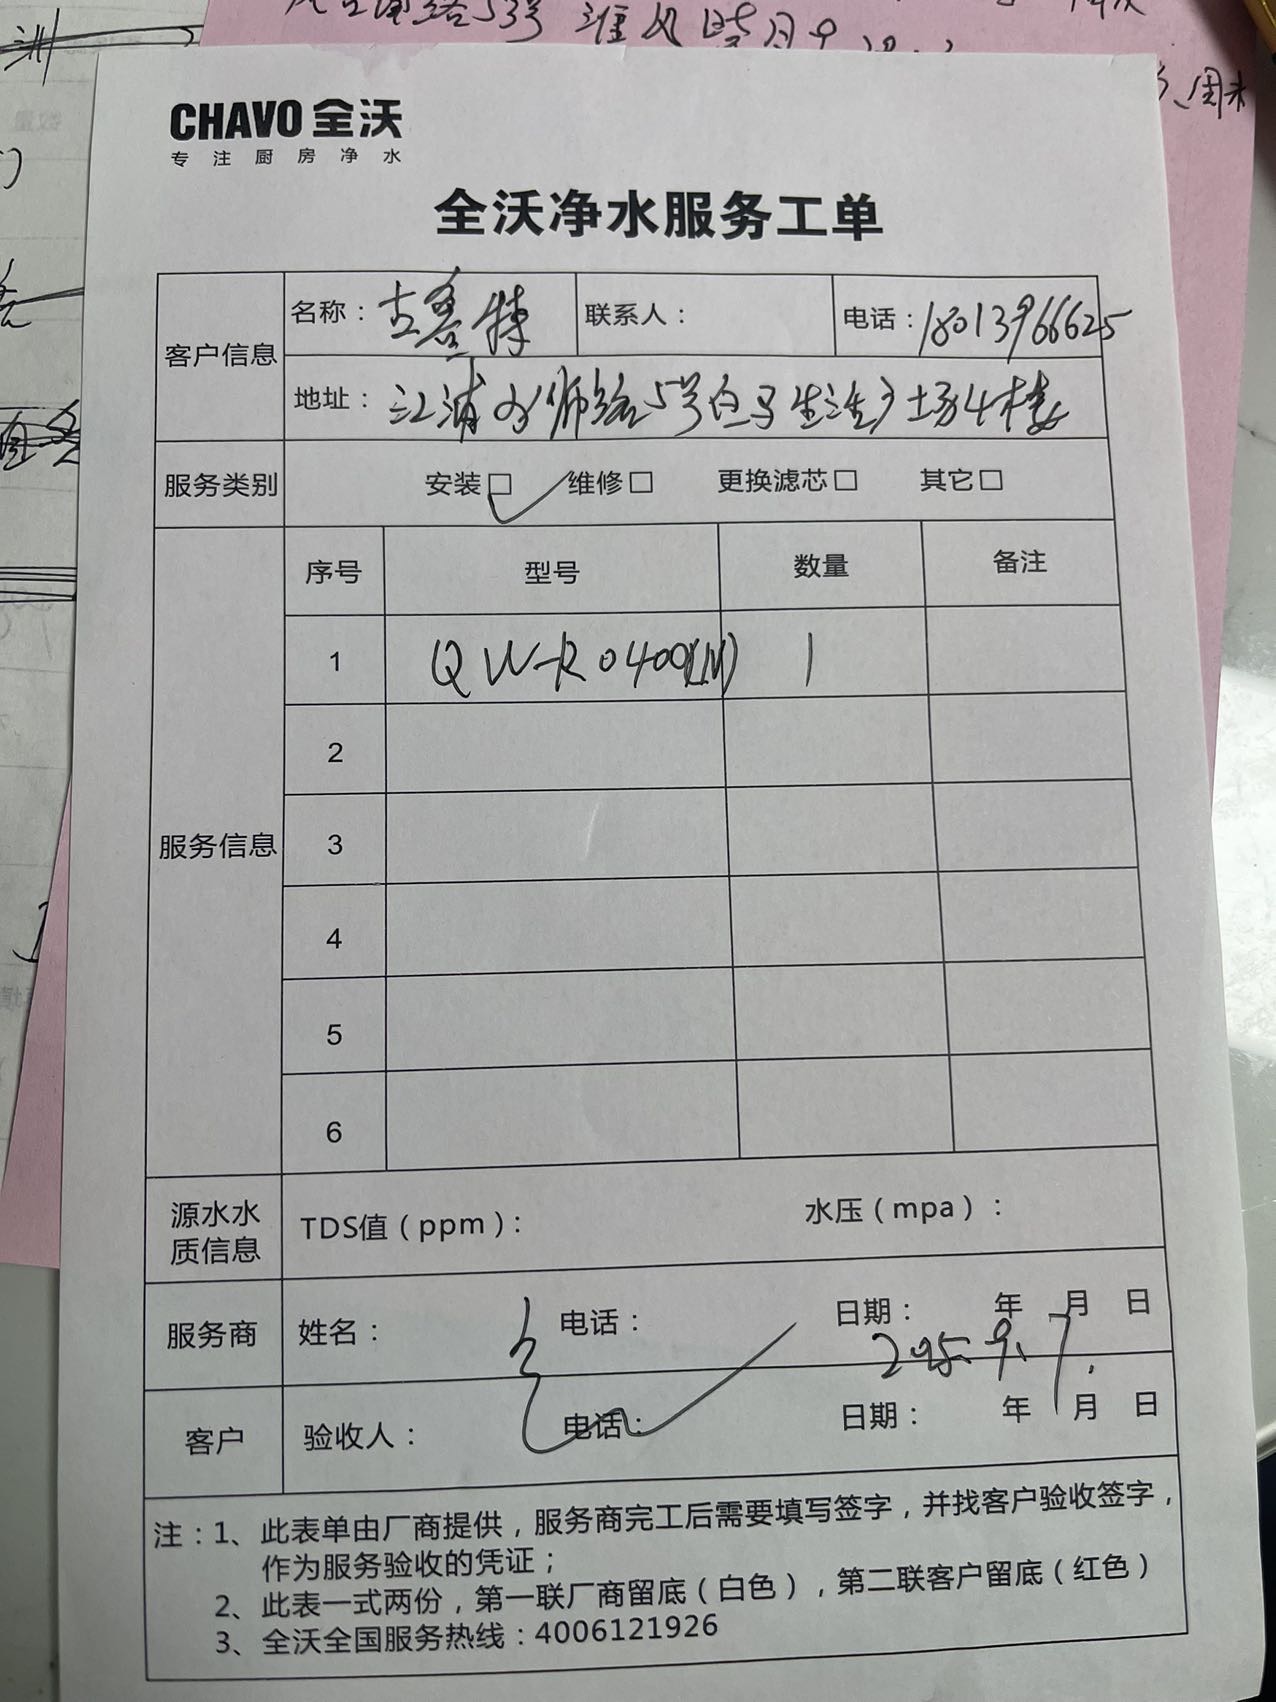 CHAVO 全沃
专注厨房净水
全沃净水服务工单
客户信息
名称：古鲁特 联系人： 电话：18013966625
地址：江浦水师路5号白马生活广场4楼
服务类别 安装□ 维修□ 更换滤芯□ 其它□
服务信息
序号 型号 数量 备注
1 QW-RO400(LN) 1
2
3
4
5
6
源水水质信息
TDS值（ppm）： 水压（mpa）：
服务商 姓名： 电话： 日期： 年 月 日
2025.9.7.
客户 验收人： 电话： 日期： 年 月 日
注：1、此表单由厂商提供，服务商完工后需要填写签字，并找客户验收签字，
作为服务验收的凭证；
2、此表一式两份，第一联厂商留底（白色），第二联客户留底（红色）
3、全沃全国服务热线：4006121926